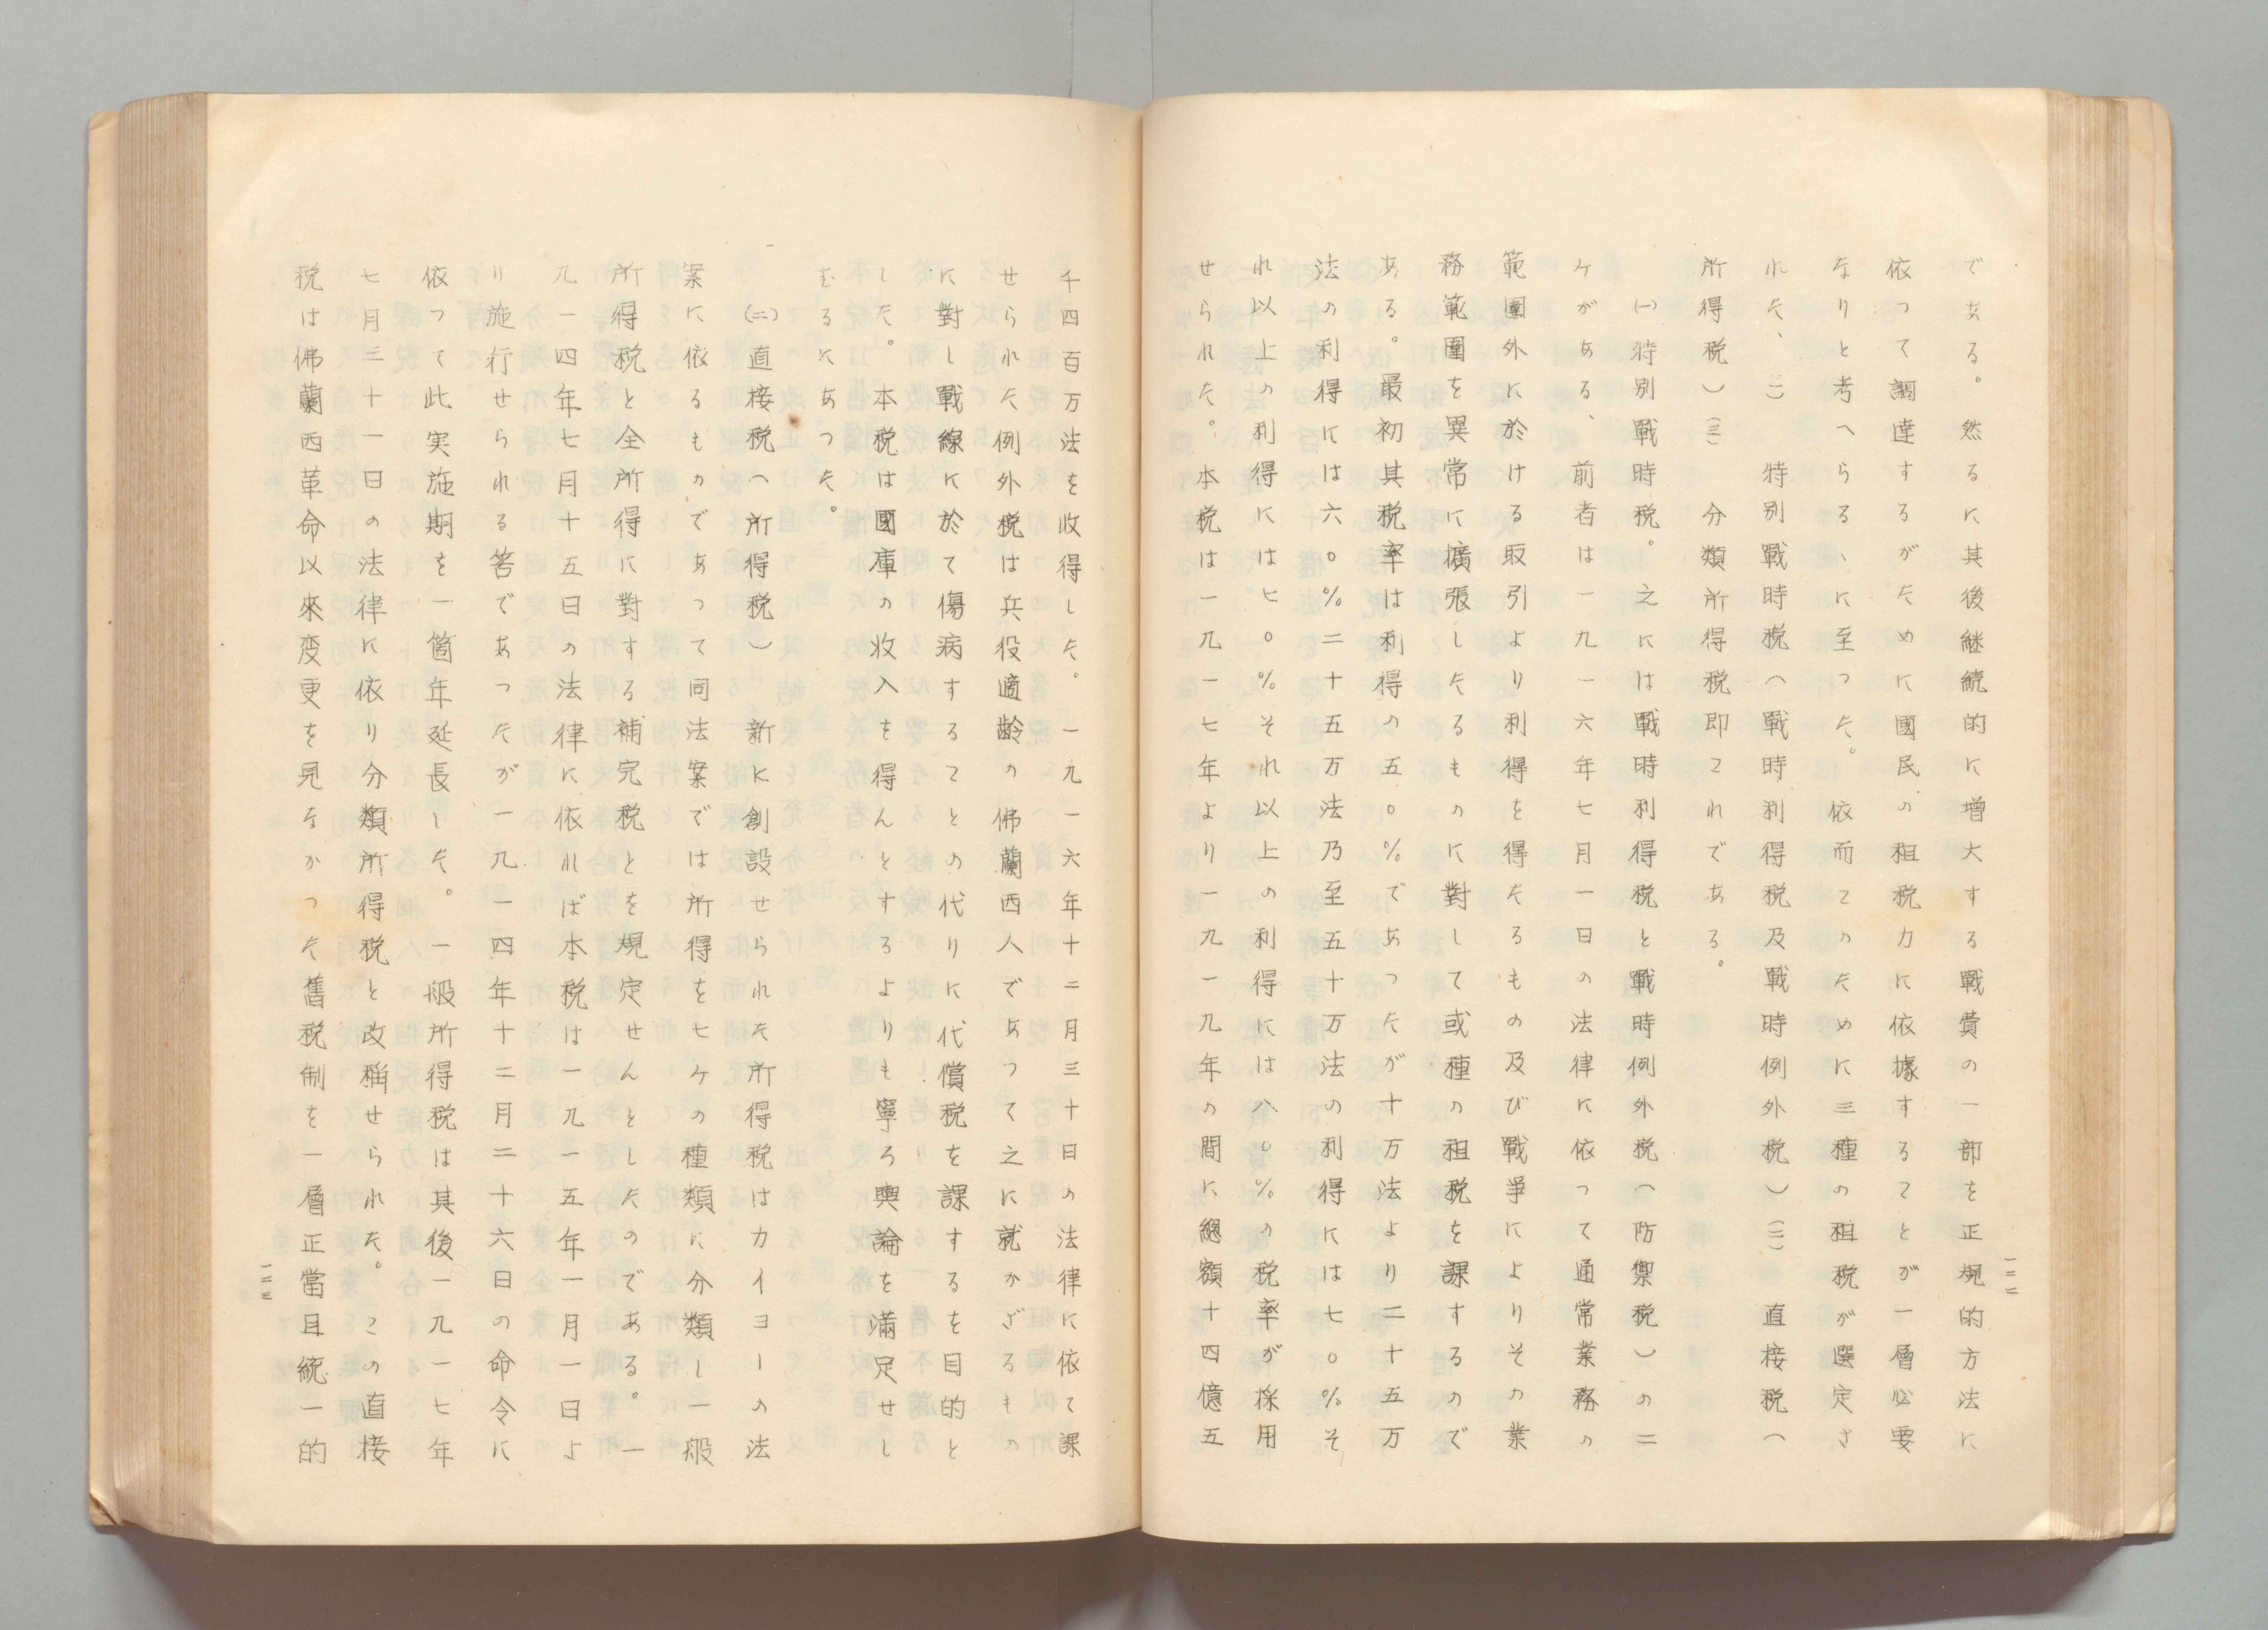 である。然るに其後継続的に増大する戰費の一部を正規的方法に
依つて調達するがために國民の租税力に依據することが一層必要
なりと考へらるゝに至つた。依而このために三種の租税が選定さ
れた、(一)特別戰時税(戰時利得税及戰時例外税)(二)直接税(
所得税)(三)分類所得税即これである。
(一)特別戰時税。之には戰時利得税と戰時例外税(防禦税)の二
ケがある、前者は一九一六年七月一日の法律に依つて通常業務の
範圍外に於ける取引より利得を得たるもの及び戰爭によりその業
務範圍を異常に擴張したるものに對して或種の租税を課するので
ある。最初其税率は利得の五〇%であつたが十万法より二十五万
法の利得には六〇%二十五万法乃至五十万法の利得には七〇%そ
れ以上の利得には七〇%それ以上の利得には八〇%の税率が採用
せられた。本税は一九一七年より一九一九年の間に總額十四億五
一二二
千四百万法を收得した。一九一六年十二月三十日の法律に依て課
せられた例外税は兵役適齢の佛蘭西人であつて之に就かざるもの
に對し戰線に於て傷病することの代りに代償税を課するを目的と
した。本税は國庫の收入を得んとするよりも寧ろ輿論を滿足せし
むるにあつた。
(二)直接税(所得税)新に創設せられた所得税はカイヨーの法
案に依るものであつて同法案では所得を七ケの種類に分類し一般
所得税と全所得に對する補完税とを規定せんとしたのである。一
九一四年七月十五日の法律に依れば本税は一九一五年一月一日よ
り施行せられる筈であつたが一九一四年十二月二十六日の命令に
依つて此実施期を一箇年延長した。一般所得税は其後一九一七年
七月三十一日の法律に依り分類所得税と改稱せられた。この直接
税は佛蘭西革命以來変更を見なかつた舊税制を一層正當且統一的
一二三